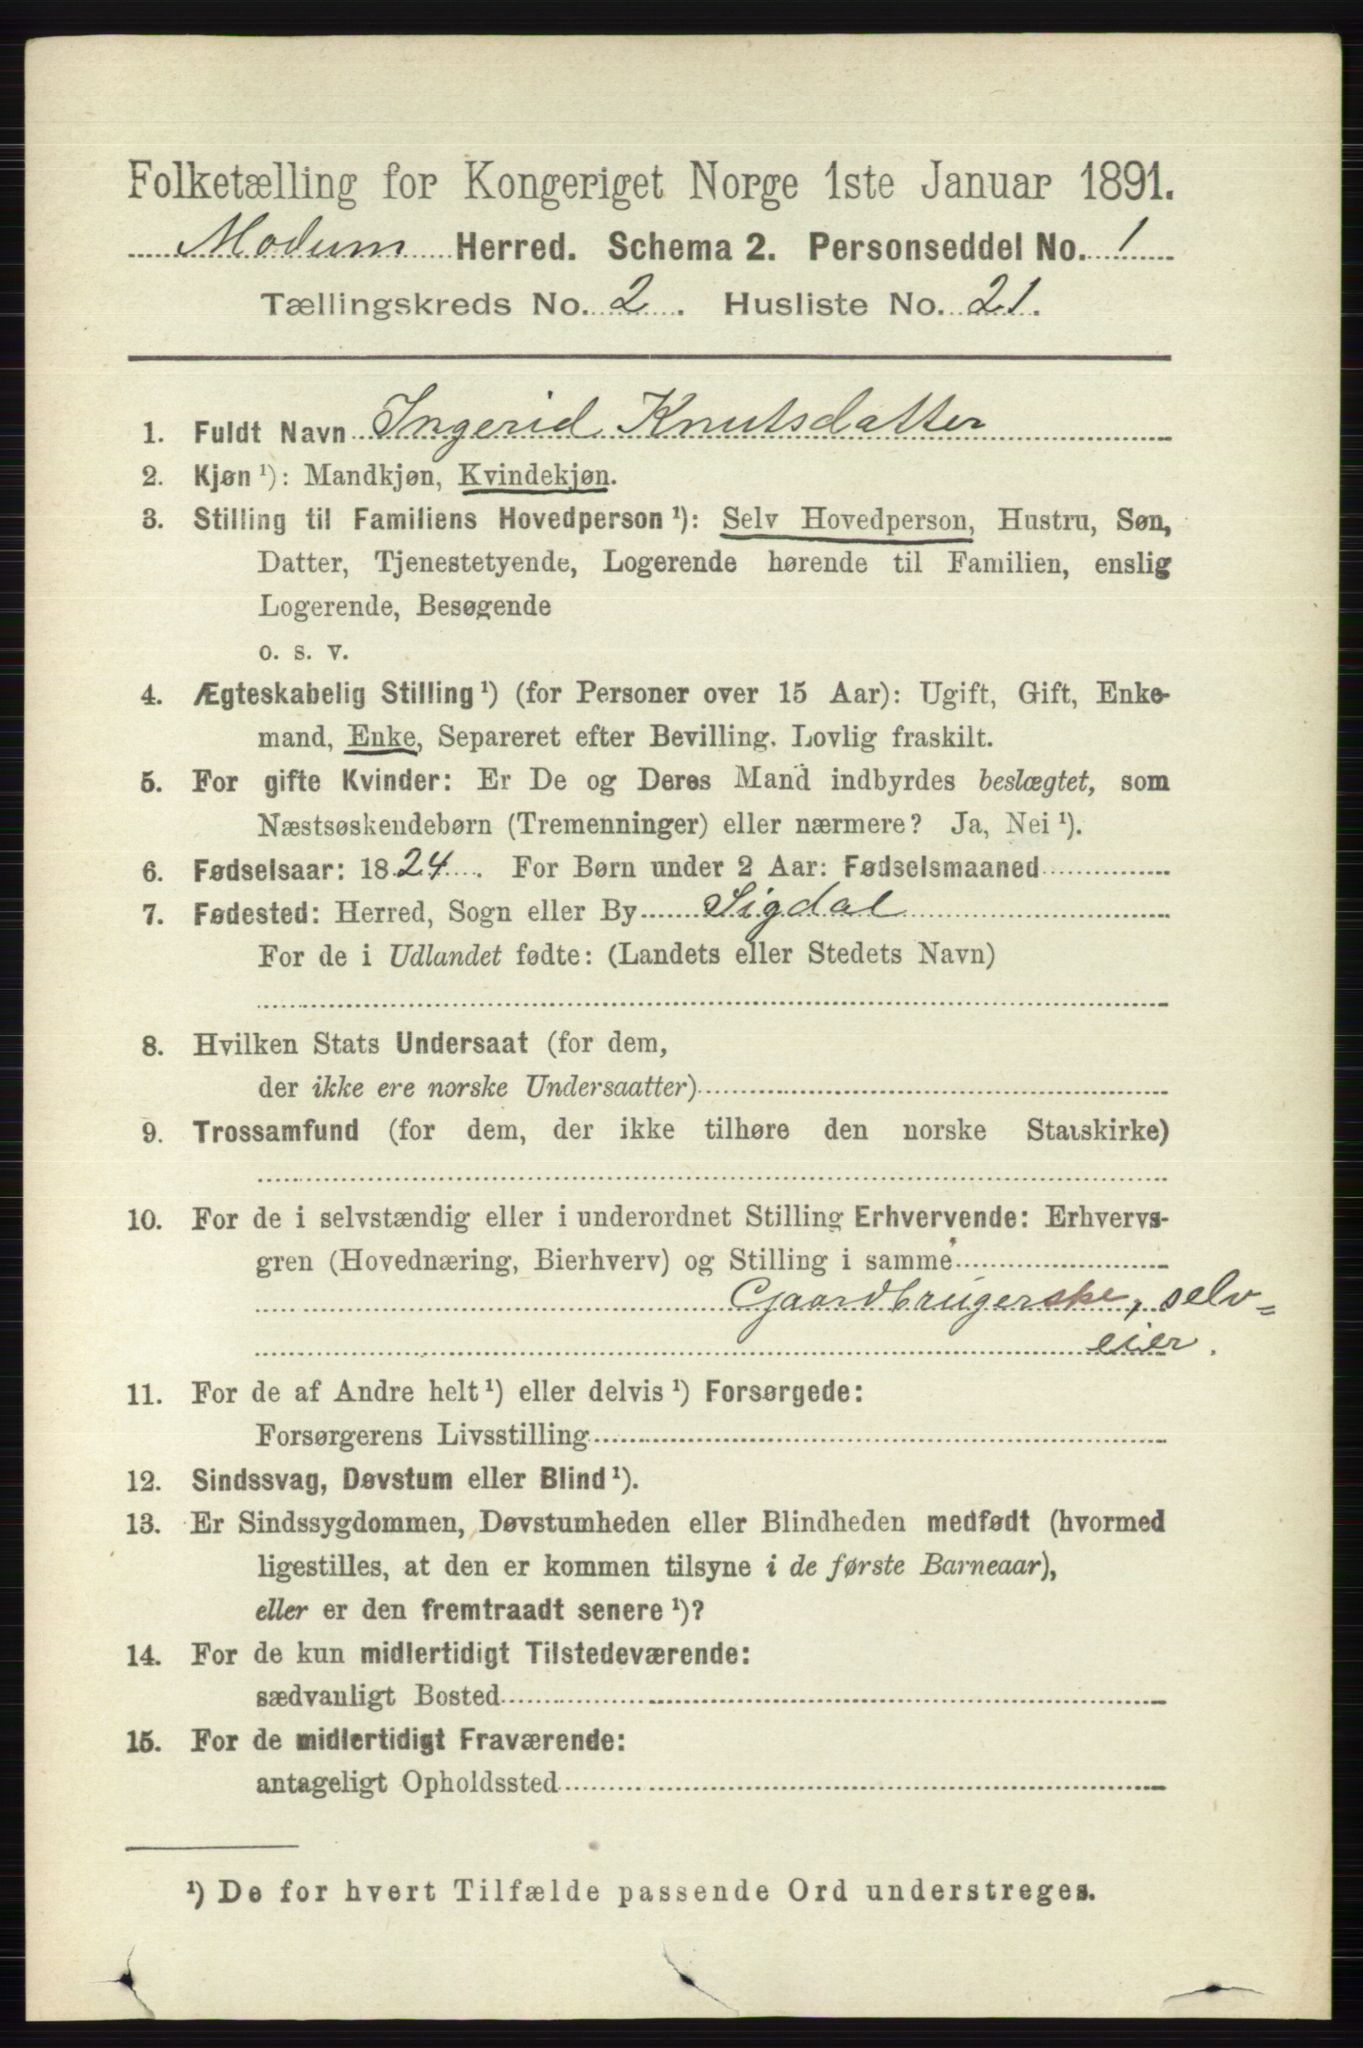 Folketælling for Kongeriget Norge 1ste Januar 1891.
Modum Herred. Schema 2. Personseddel No. 1
Tællingskreds No. 2. Husliste No. 21.
1. Fuldt Navn Ingerid Knutsdatter
2. Kjøn ¹): Mandkjøn, Kvindekjøn.
3. Stilling til Familiens Hovedperson ¹): Selv Hovedperson, Hustru, Søn,
Datter, Tjenestetyende, Logerende hørende til Familien, enslig
Logerende, Besøgende
o. s. v.
4. Ægteskabelig Stilling ¹) (for Personer over 15 Aar): Ugift, Gift, Enke-
mand, Enke, Separeret efter Bevilling. Lovlig fraskilt.
5. For gifte Kvinder: Er De og Deres Mand indbyrdes beslægtet, som
Næstsøskendebørn (Tremenninger) eller nærmere? Ja, Nei ¹).
6. Fødselsaar: 1824. For Børn under 2 Aar: Fødselsmaaned
7. Fødested: Herred, Sogn eller By Sigdal
For de i Udlandet fødte: (Landets eller Stedets Navn)
8. Hvilken Stats Undersaat (for dem,
der ikke ere norske Undersaatter)
9. Trossamfund (for dem, der ikke tilhøre den norske Statskirke)
10. For de i selvstændig eller i underordnet Stilling Erhvervende: Erhvervs-
gren (Hovednæring, Bierhverv) og Stilling i samme
Gaardbrugerske, selv=
eier.
11. For de af Andre helt ¹) eller delvis ¹) Forsørgede:
Forsørgerens Livsstilling
12. Sindssvag, Døvstum eller Blind ¹).
13. Er Sindssygdommen, Døvstumheden eller Blindheden medfødt (hvormed
ligestilles, at den er kommen tilsyne i de første Barneaar),
eller er den fremtraadt senere ¹)?
14. For de kun midlertidigt Tilstedeværende:
sædvanligt Bosted
15. For de midlertidigt Fraværende:
antageligt Opholdssted
¹) De for hvert Tilfælde passende Ord understreges.